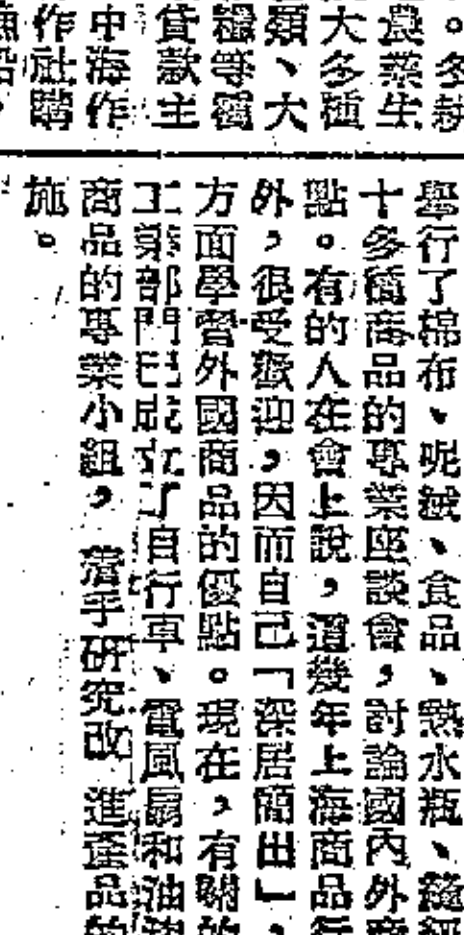 。多耕
農藥生
大多種
類、大
糧等獲
貸款主
中海作
作社購
漁船，
舉行了棉布、呢絨、食品、熱水瓶、縫紉
十多種商品的專業座談會，討論國內外商
點。有的人在會上說，這幾年上海商品行
外，很受歡迎，因而自己「深居簡出」，
方面學習外國商品的優點。現在，有關的
工業部門已成立了自行車、電風扇和油漆
商品的專業小組，着手研究改進產品的
施。